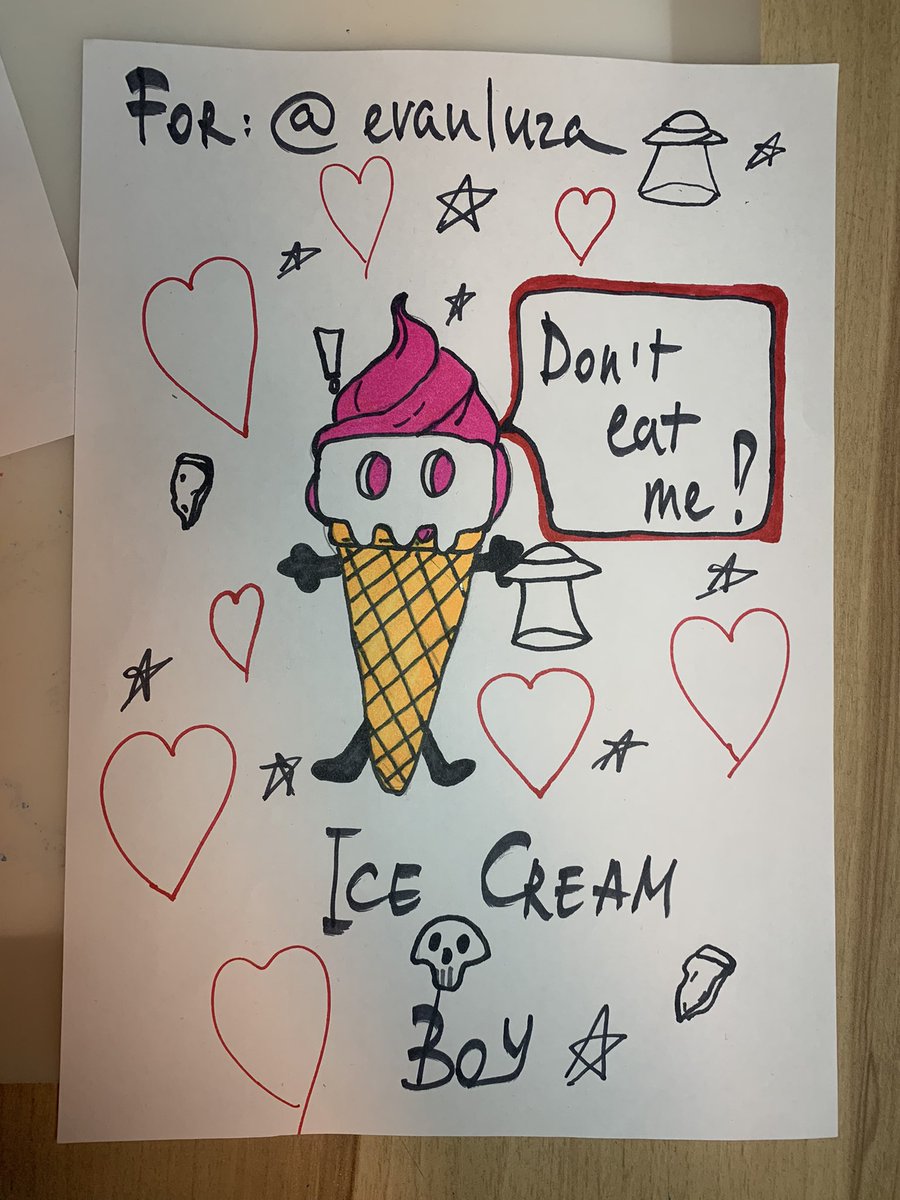 FOR: @evanluza
!
Don't
eat
me!
ICE CREAM
BOY